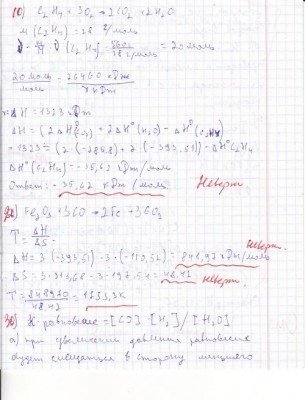 10) C₂H₄ + 3O₂ → 2CO₂ + 2H₂O
M (C₂H₄) = 28 г/моль
(C₂H₄) 560г / 28 г/моль = 20 моль
20 моль = 26460 кДж
моль x кДж
ΔH = 1323 кДж
ΔH = (2ΔH°(CO₂) + 2ΔH°(H₂O) - ΔH°(C₂H₄)
-1323 = (2·(-285,8) + 2·(-393,51)) - ΔH°C₂H₄
ΔH°(C₂H₄) = -35,62 кДж/моль
Ответ: -35,62 кДж/моль Неверн.
Fe₂O₃ + 3CO → 2Fe + 3CO₂
T = ΔH / ΔS Неверн.
ΔH = 3·(-393,51) - 3·(-110,52) = 848,97 кДж/моль
ΔS = 3·213,68 - 3·197,54 = 48,42 Неверн.
T = 848970 / 48,42 = 1753,3К
30) К равновесие = [CO]·[H₂] / [H₂O]
а) при увеличении давления равновесие
будет смещаться в сторону меньшего